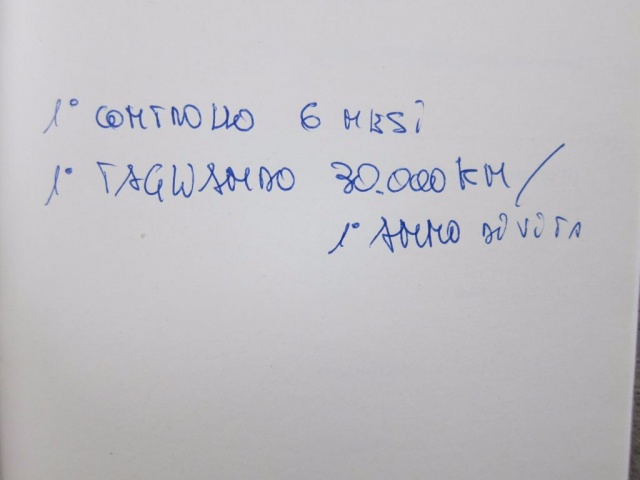 1° CONTROLLO 6 MESI
1° TAGLIANDO 30.000 KM/
1° ANNO DI VITA